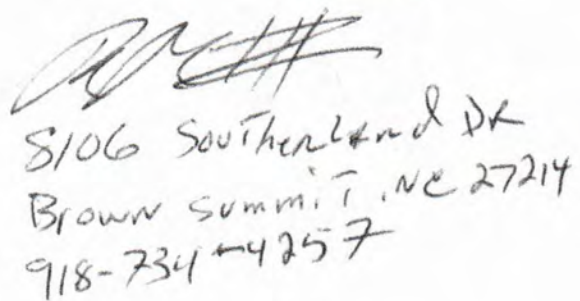 8106 Southerland DR
Brown Summit, NC 27214
918-734-4257